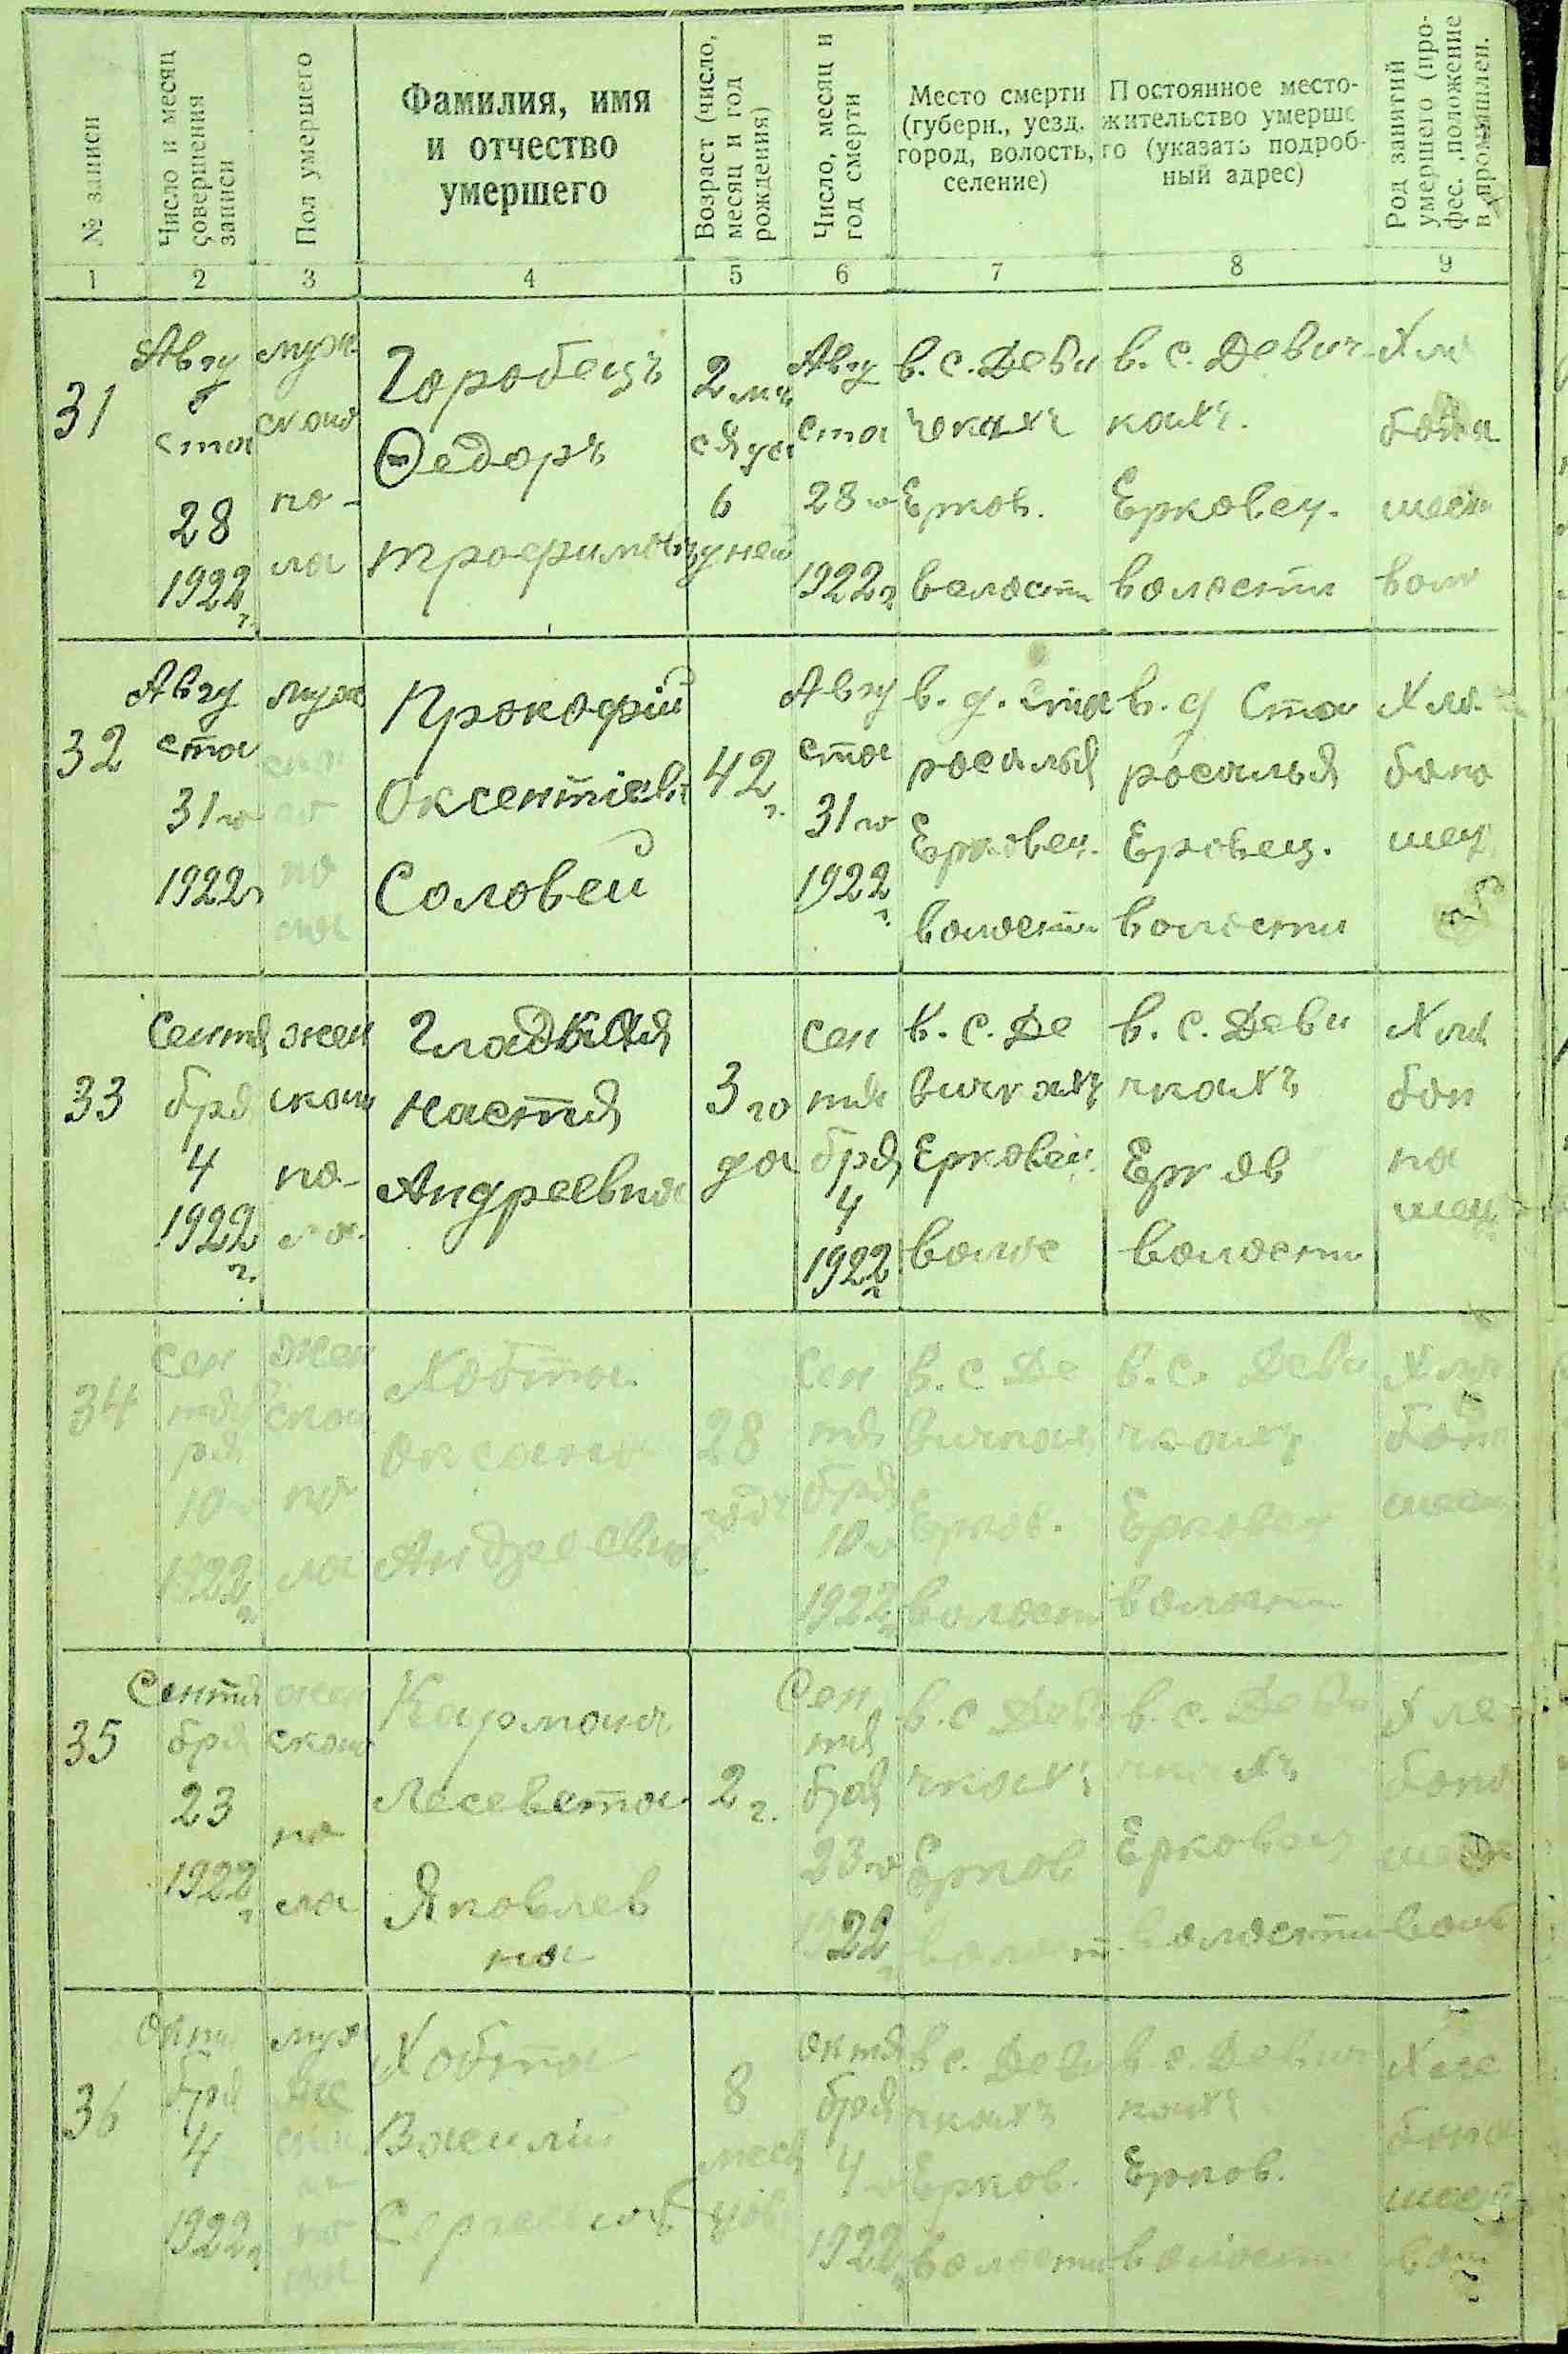 № записи
Число и месяц совершения записи
Пол умершего
Фамилия, имя
и отчество
умершего
Возраст (число, месяц и год рождения)
Число, месяц и год смерти
Место смерти
(губерн., уезд.
город, волость,
селение)
Постоянное место-
жительство умерше
го (указать подроб-
ный адрес)
Род занятий умершего (про-
фес. положение
в промышлен.
1 2 3 4 5 6 7 8 9
31
Авгу
ста
28
1922
г.
муж.
ско
по-
ла
Горобецъ
Ѳедоръ
Трофимовъ
2 ме
сяца
6
дней
Авгу
ста
28го
1922г
в. с. Деви
чкахъ
Ерков.
волости
в. с. Девич
кахъ.
Ерковец.
волости
Хле
бопа
шест
вом
32
Авгу
ста
31го
1922г
муж
ско
го
по
ла
Прокофій
Оксентіевъ
Соловей
42
г.
Авгу
ста
31го
1922
г.
в. д. Ста
роселья
Ерковец.
волости
в. д Ста
роселья
Еровец.
волости
Хле
бопа
шец
33
Сентя
бря
4
1922
г.
жен
ском
по-
ла
Гладкая
Настія
Андреевна
3 го
да
Сен
тя
бря
4
1922
г
в. с. Де
вичкахъ
Ерковец.
волос
в. с. Деви
чкахъ
Ерков
волости
Хле
боп
па
шец
34
Сен
тяб
ря
10го
1922
г
жен
ског
по
ла
Хобта
Оксана
Андреевна
28
год
Сен
тя
бря
10го
1922
в. с Де
вичках
Ерков.
волост
в. с. Деви
чкахъ
Ерковец
волости
Хле
бопа
шец
35
Сентя
бря
23
1922
г
жен
ском
по
ла
Кармана
Лесевета
Яковлев
на
2 г.
Сен
тя
бря
23го
1922
в. с Деви
чкахъ
Ерков
волост.
в. с. Деви
чкахъ
Ерковец
волости
Хле
бопа
шест
вом
36
Октя
бря
4
1922г
муж
ско
по
ла
Хобта
Василій
Сергеевъ
8
меся
цов
октя
бря
4го
1922
в с. Деви
чкахъ
Ерков.
волости
в с. Девич
кахъ
Ерков.
волости
Хле
бопа
шест
вом